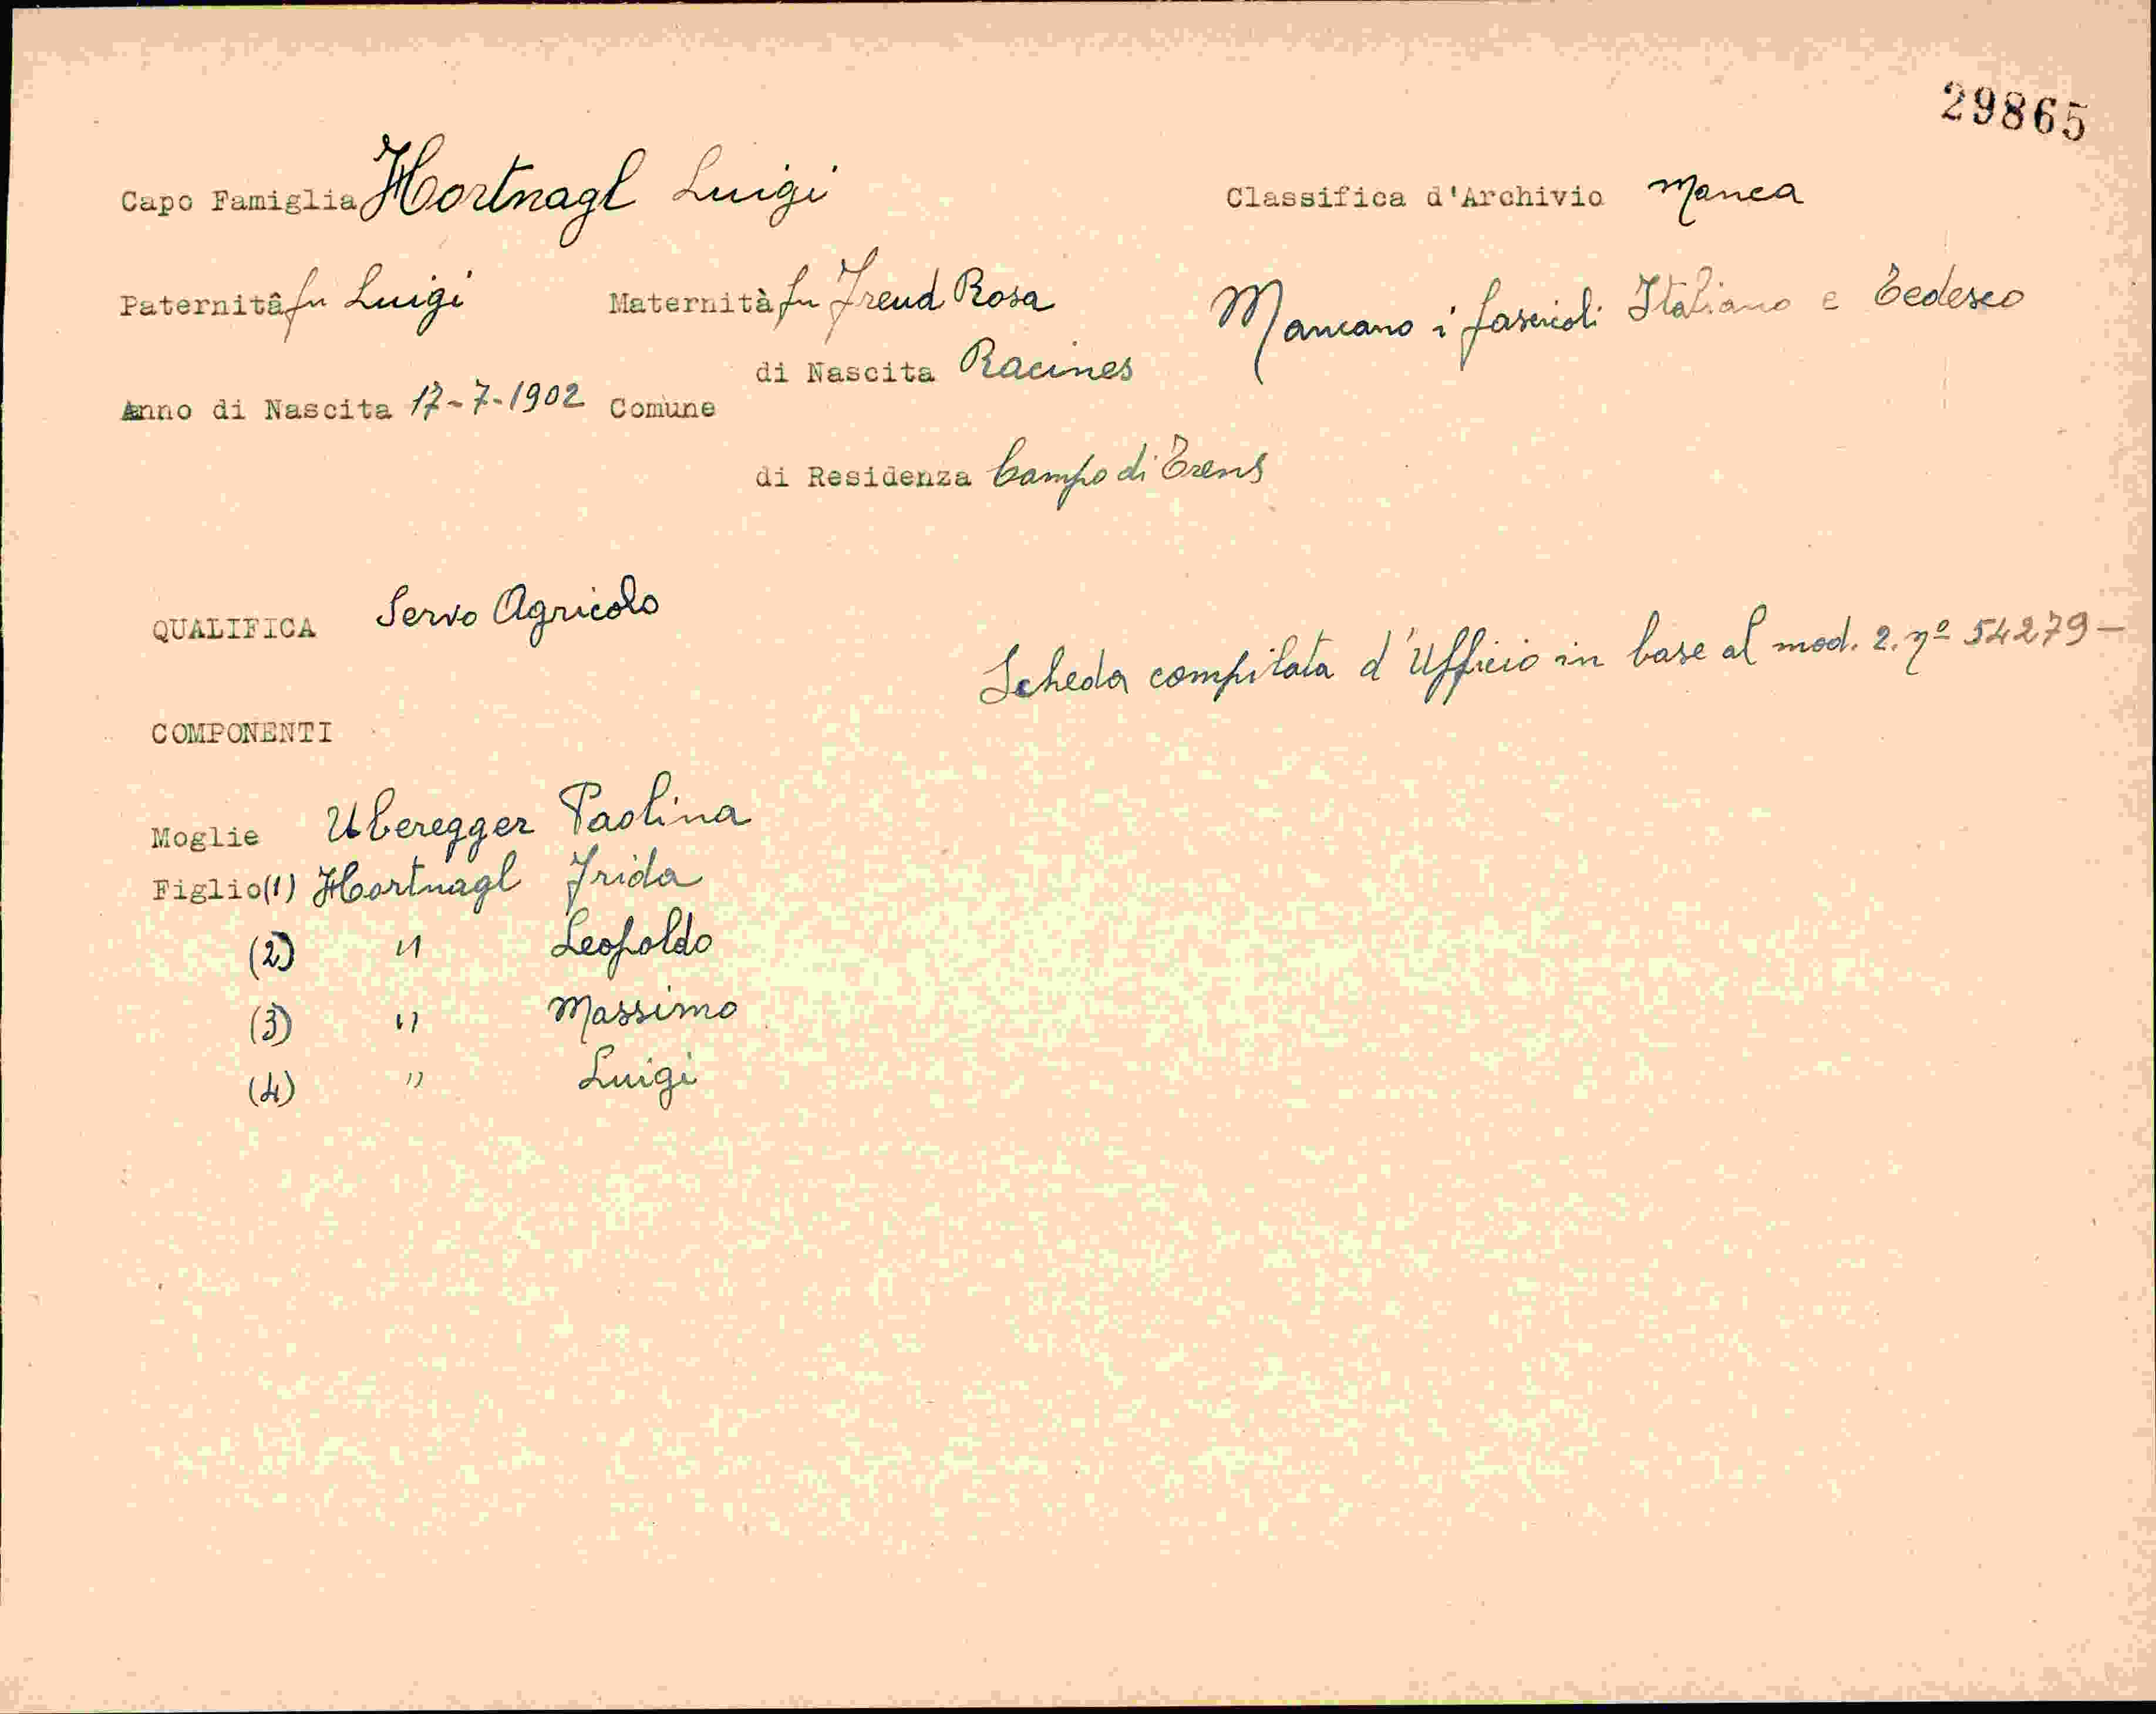 29865
Capo Famiglia Hortnagl Luigi
Classifica d'Archivio Manca
Paternità fu Luigi Maternità fu Freud Rosa
Mancano i fascicoli Italiano e Tedesco
di Nascita Racines
Anno di Nascita 17-7-1902 Comune
di Residenza Campo di Trens
QUALIFICA Servo Agricolo
Scheda compilata d'Ufficio in base al mod. 2. nº 54279 -
COMPONENTI
Moglie Uberegger Paolina
Figlio (1) Hortnagl Frida
(2) " Leopoldo
(3) " Massimo
(4) " Luigi